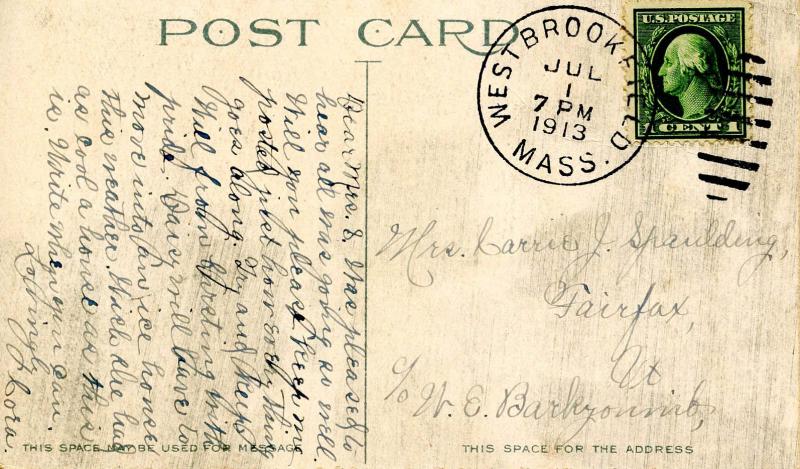 POST CARD
WEST BROOKFIELD
JUL
1
7 PM
1913
MASS.
U.S. POSTAGE
1 CENTS 1
Dear Mrs. S. Was pleased to
hear all was going so well.
Will you please keep me
posted just how everything
goes along. Try and keep
Will from bursting with
pride. Dave will have to
move into an ice house
this weather. Wish she had
as cool a house as this
is. Write when you can.
Lovingly Cora.
Mrs. Carrie J. Spaulding,
Fairfax,
Vt
c/o W. E.
THIS SPACE MAY BE USED FOR MESSAGE
THIS SPACE FOR THE ADDRESS